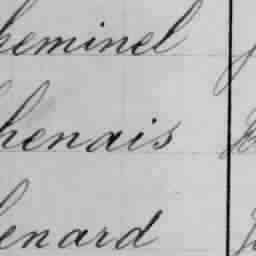 heminel
henais
enard